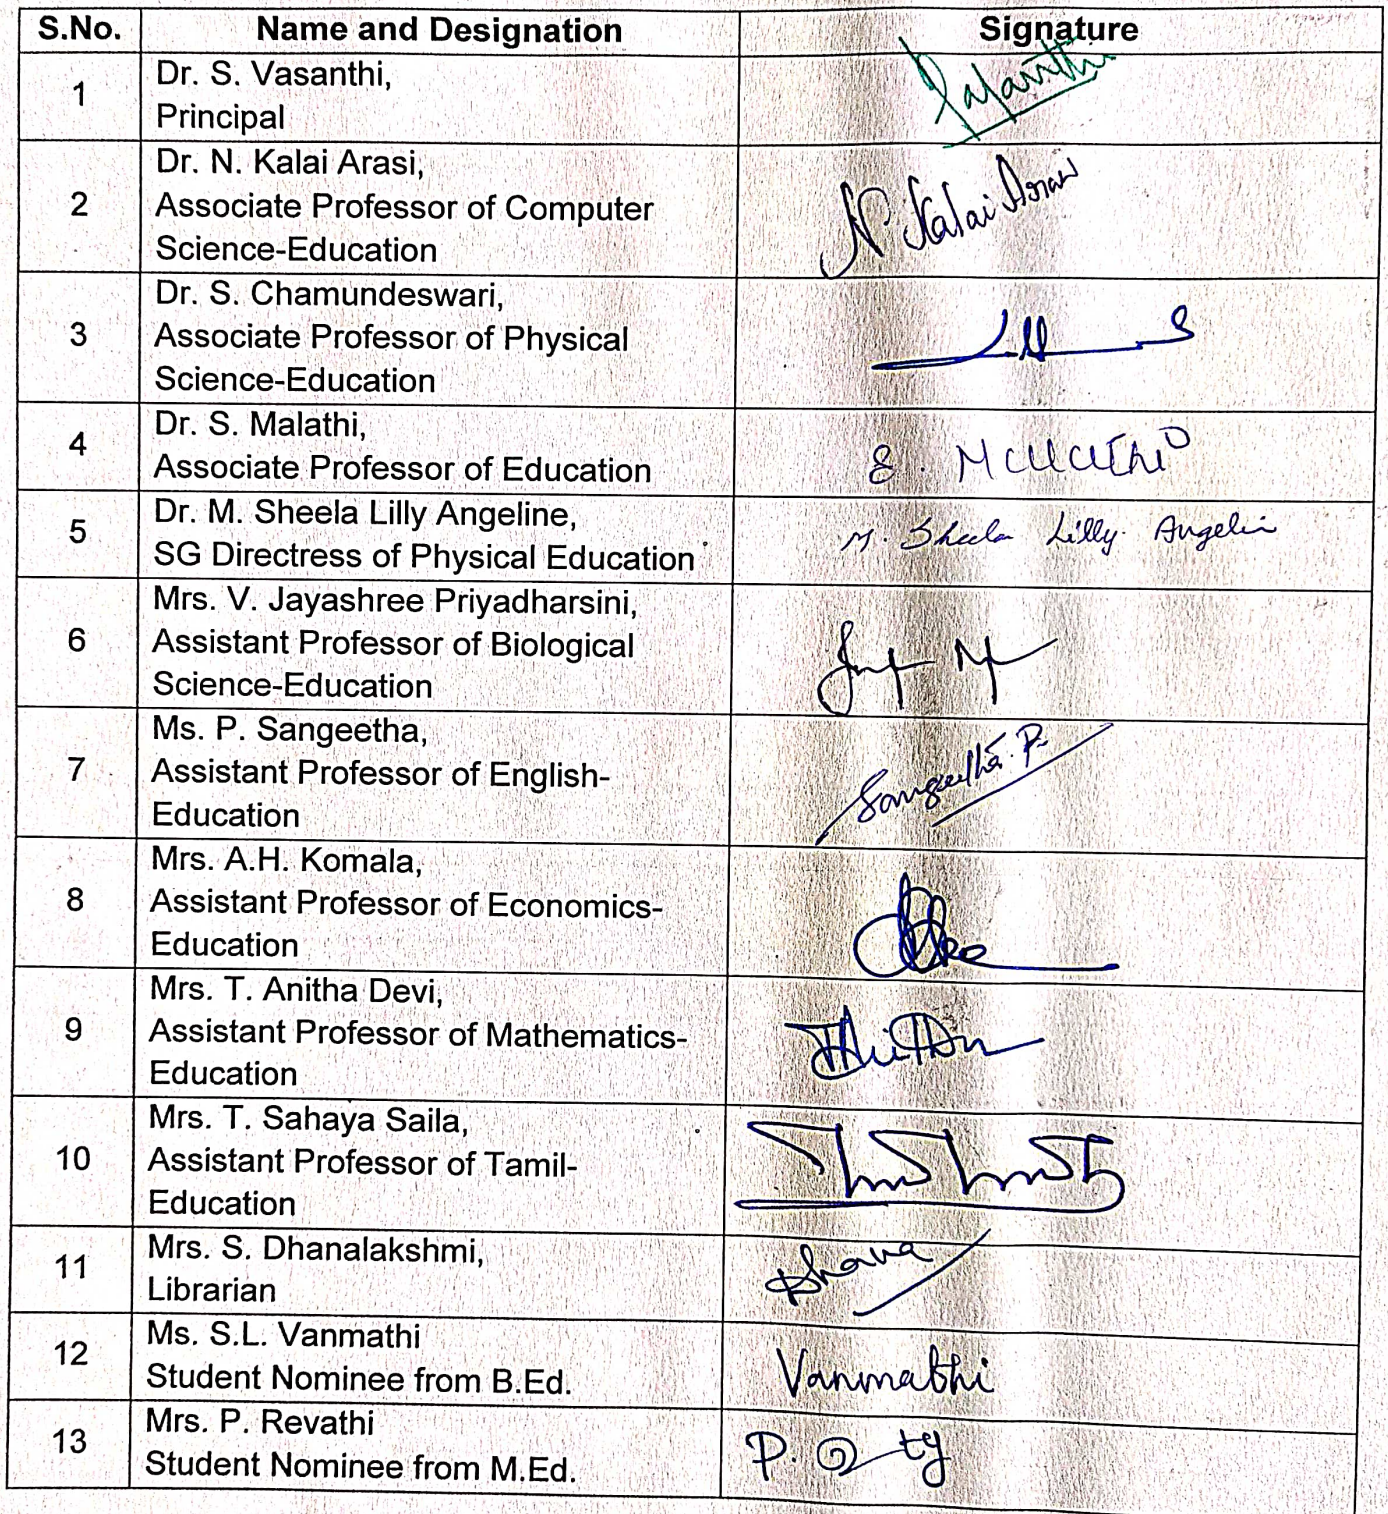 S.No. Name and Designation Signature
1 Dr. S. Vasanthi,
Principal
2 Dr. N. Kalai Arasi,
Associate Professor of Computer
Science-Education
N. Kalai
3 Dr. S. Chamundeswari,
Associate Professor of Physical
Science-Education
4 Dr. S. Malathi,
Associate Professor of Education
S. Malathi
5 Dr. M. Sheela Lilly Angeline,
SG Directress of Physical Education
M. Sheela Lilly Angelin
6 Mrs. V. Jayashree Priyadharsini,
Assistant Professor of Biological
Science-Education
7 Ms. P. Sangeetha,
Assistant Professor of English-
Education
Sangeetha. P.
8 Mrs. A.H. Komala,
Assistant Professor of Economics-
Education
9 Mrs. T. Anitha Devi,
Assistant Professor of Mathematics-
Education
10 Mrs. T. Sahaya Saila,
Assistant Professor of Tamil-
Education
11 Mrs. S. Dhanalakshmi,
Librarian
Dhana
12 Ms. S.L. Vanmathi
Student Nominee from B.Ed.
Vanmathi
13 Mrs. P. Revathi
Student Nominee from M.Ed.
P.